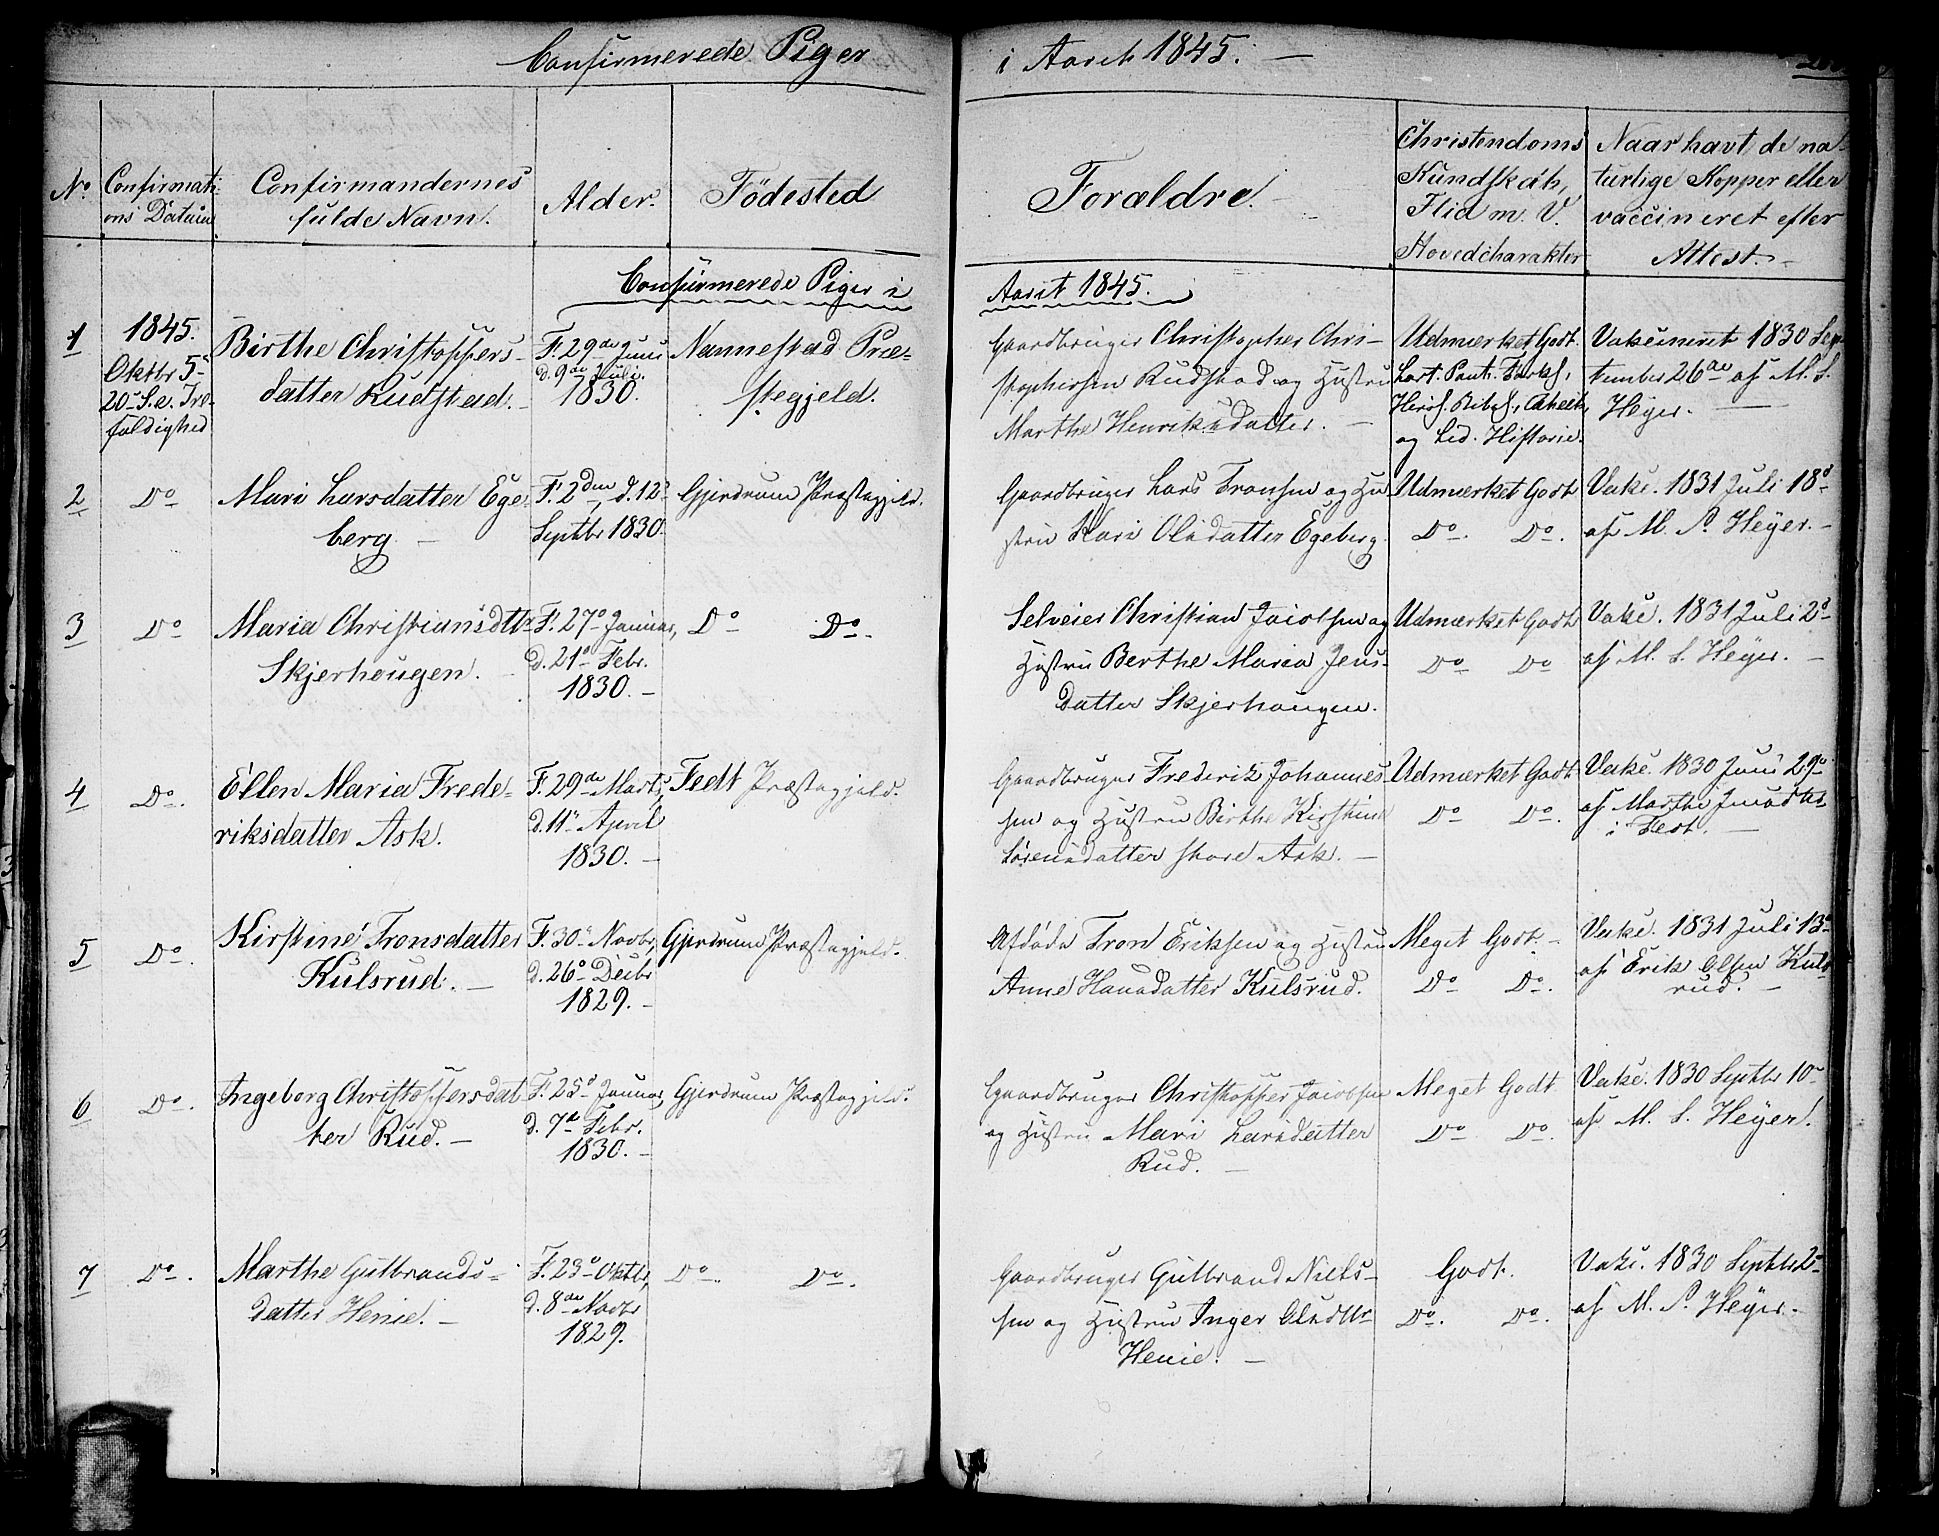 Confirmerede Piger i Aaret 1845. —
No.
Confirmati
ons Datum
Confirmandernes
fulde Navn.
Alder.
Födested
Forældre. —
Christendoms
Kundskab,
Flid m. V.
Hovedcharakter
Naar havt de na
turlige Kopper eller
vaccineret efter
Attest. —
Confirmerede Piger i Aaret 1845.
1
1845.
Oktbr 5-
20- S. e. Tre
foldighed
Birthe Christoffers-
datter Rudstad. -
F. 29de Juni
d. 9de Juli.
1830.
Nannestad Præ-
stegjeld.
Gaardbruger Christopher Chri-
stophersen Rudstad og Hustru
Marthe Henriksdatter. —
Udmærket Godt.
og bid. Historie.
Vakcineret 1830 Sep-
tember 26de af M. S.
Heÿer. —
2
Do
Mari Larsdatter Ege-
berg. —
F. 2den, d. 12-
Septbr 1830.
Gjerdrum Præstegjeld.
Gaardbruger Lars Tronsen og Hu-
stru Kari Olsdatter Egeberg.
Udmærket Godt
Do. Do.
Vakc. 1831 Juli 18d
af M. S. Heÿer. -
3
Do
Maria Christiansdttr
Skjerhougen. -
F. 27o Januar,
d. 21o Febr.
1830. -
Do Do.
Selveier Christian Jacobsen og
Hustru Berthe Maria Jens-
datter Skjerhaugen.
Udmærket Godt
Do Do
Vakc. 1831 Juli 2d
af M. S. Heÿer. -
4
Do.
Ellen Maria Frede-
riksdatter Ask.
F. 29de Marts,
d. 11- April
1830. -
Fedt Præstegjeld.
Gaardbruger Frederik Johannes-
sen og Hustru Birthe Kirstine
Sörensdatter store Ask. —
Udmærket Godt
Do Do.
Vakc. 1830 Juni 29o
af Marthe
i Fedt. —
5
Do.
Kirstine Tronsdatter
Kulsrud. -
F. 30- Novbr,
d. 26o Decbr
1829. -
Gjerdrum Præstegjeld.
Afdöde Tron Eriksen og Hustru
Anne Hansdatter Kulsrud.
Meget Godt. -
Do Do.
Vakc. 1831 Juli 13-
af Erik Olsen Kuls
rud. -
6
Do.
Ingeborg Christoffersdat
ter Rud. -
F. 25d Januar,
d. 7de Febr.
1830. -
Gjerdrum Præstegjeld.
Gaardbruger Christoffer Jacobsen
og Hustru Mari Larsdatter
Rud. —
Meget Godt
Do Do.
Vakc. 1830 Septbr 10-
af M. S. Heÿer.
7
Do.
Marthe Gulbrands-
datter Henie. -
F. 23o Oktbr,
d. 8de Novbr
1829.
Do. Do.
Gaardbruger Gulbrand Niels-
sen og Hustru Inger Olsdttr
Henie. —
Godt.
Do. Do.
Vakc. 1830 Septbr 2-
af M. S. Heÿer. -